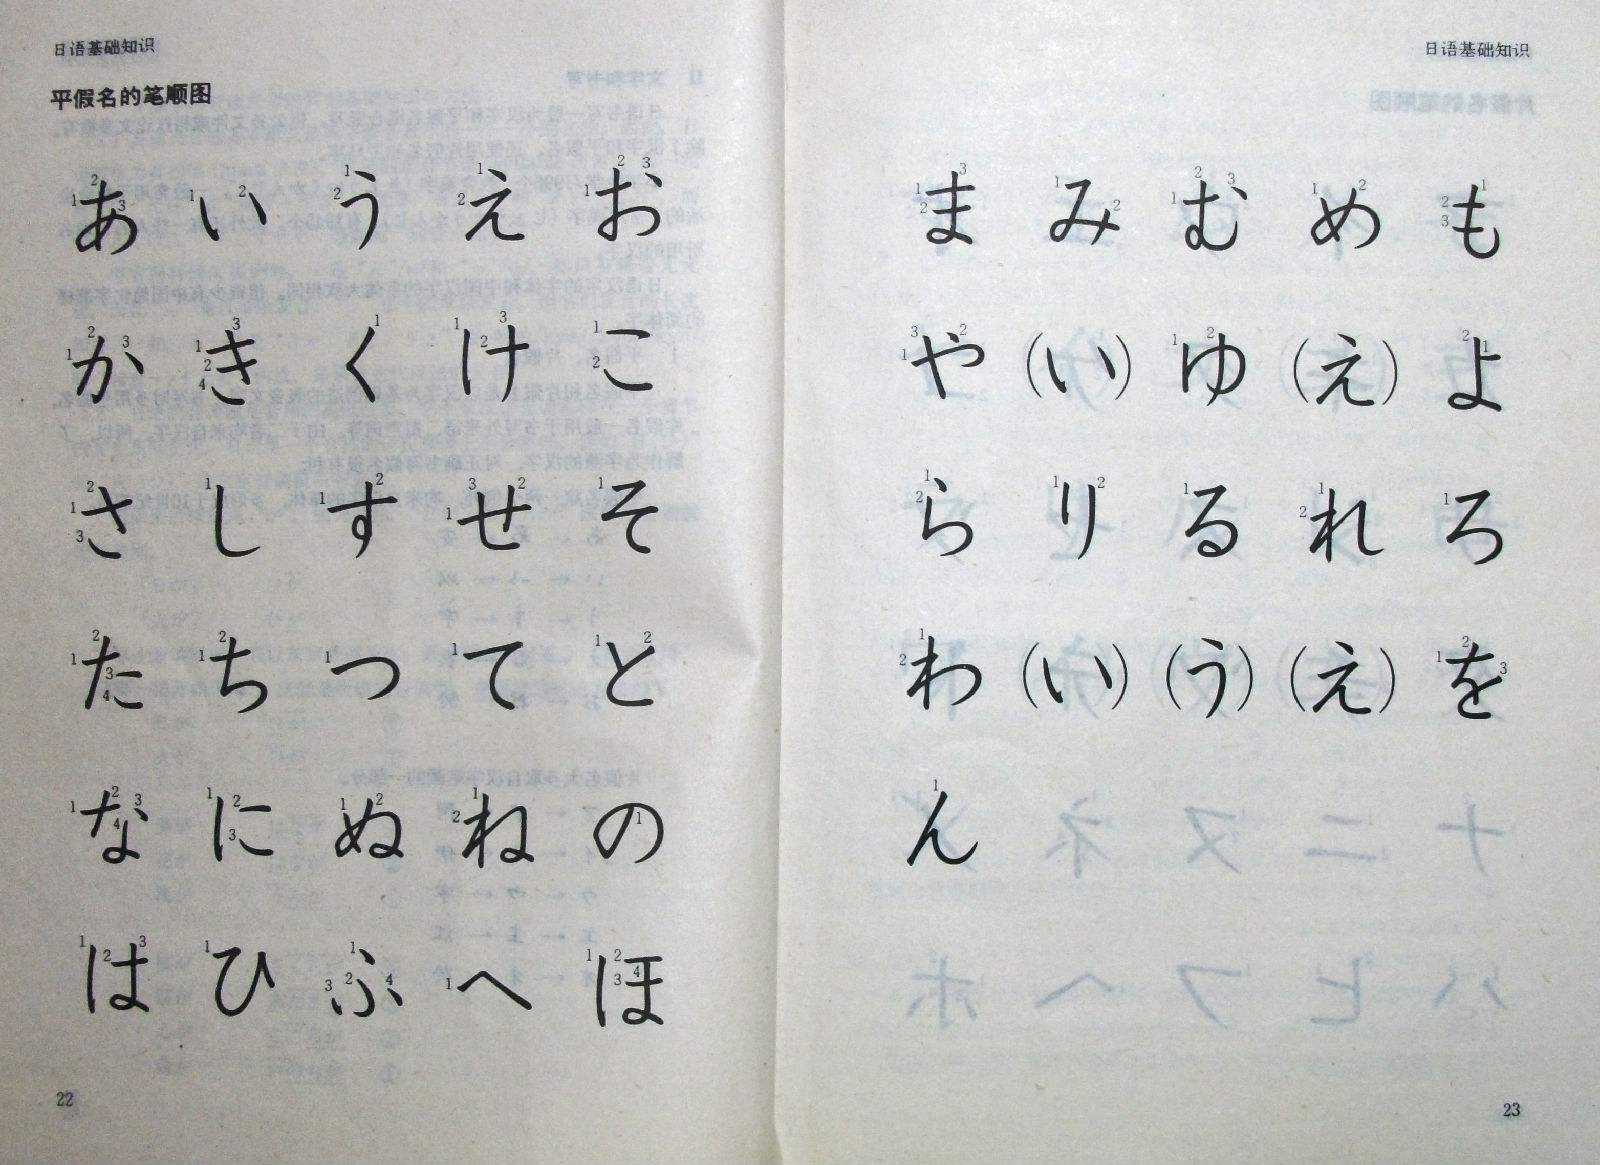 日语基础知识
平假名的笔顺图
あ い う え お
か き く け こ
さ し す せ そ
た ち つ て と
な に ぬ ね の
は ひ ふ へ ほ
22
日语基础知识
ま み む め も
や (い) ゆ (え) よ
ら り る れ ろ
わ (い) (う) (え) を
ん
23